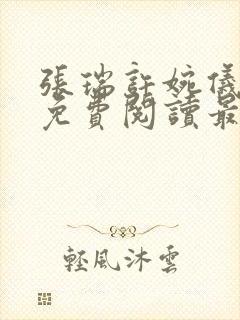 張瑞許婉儀
免費閱讀最
輕風沐雲